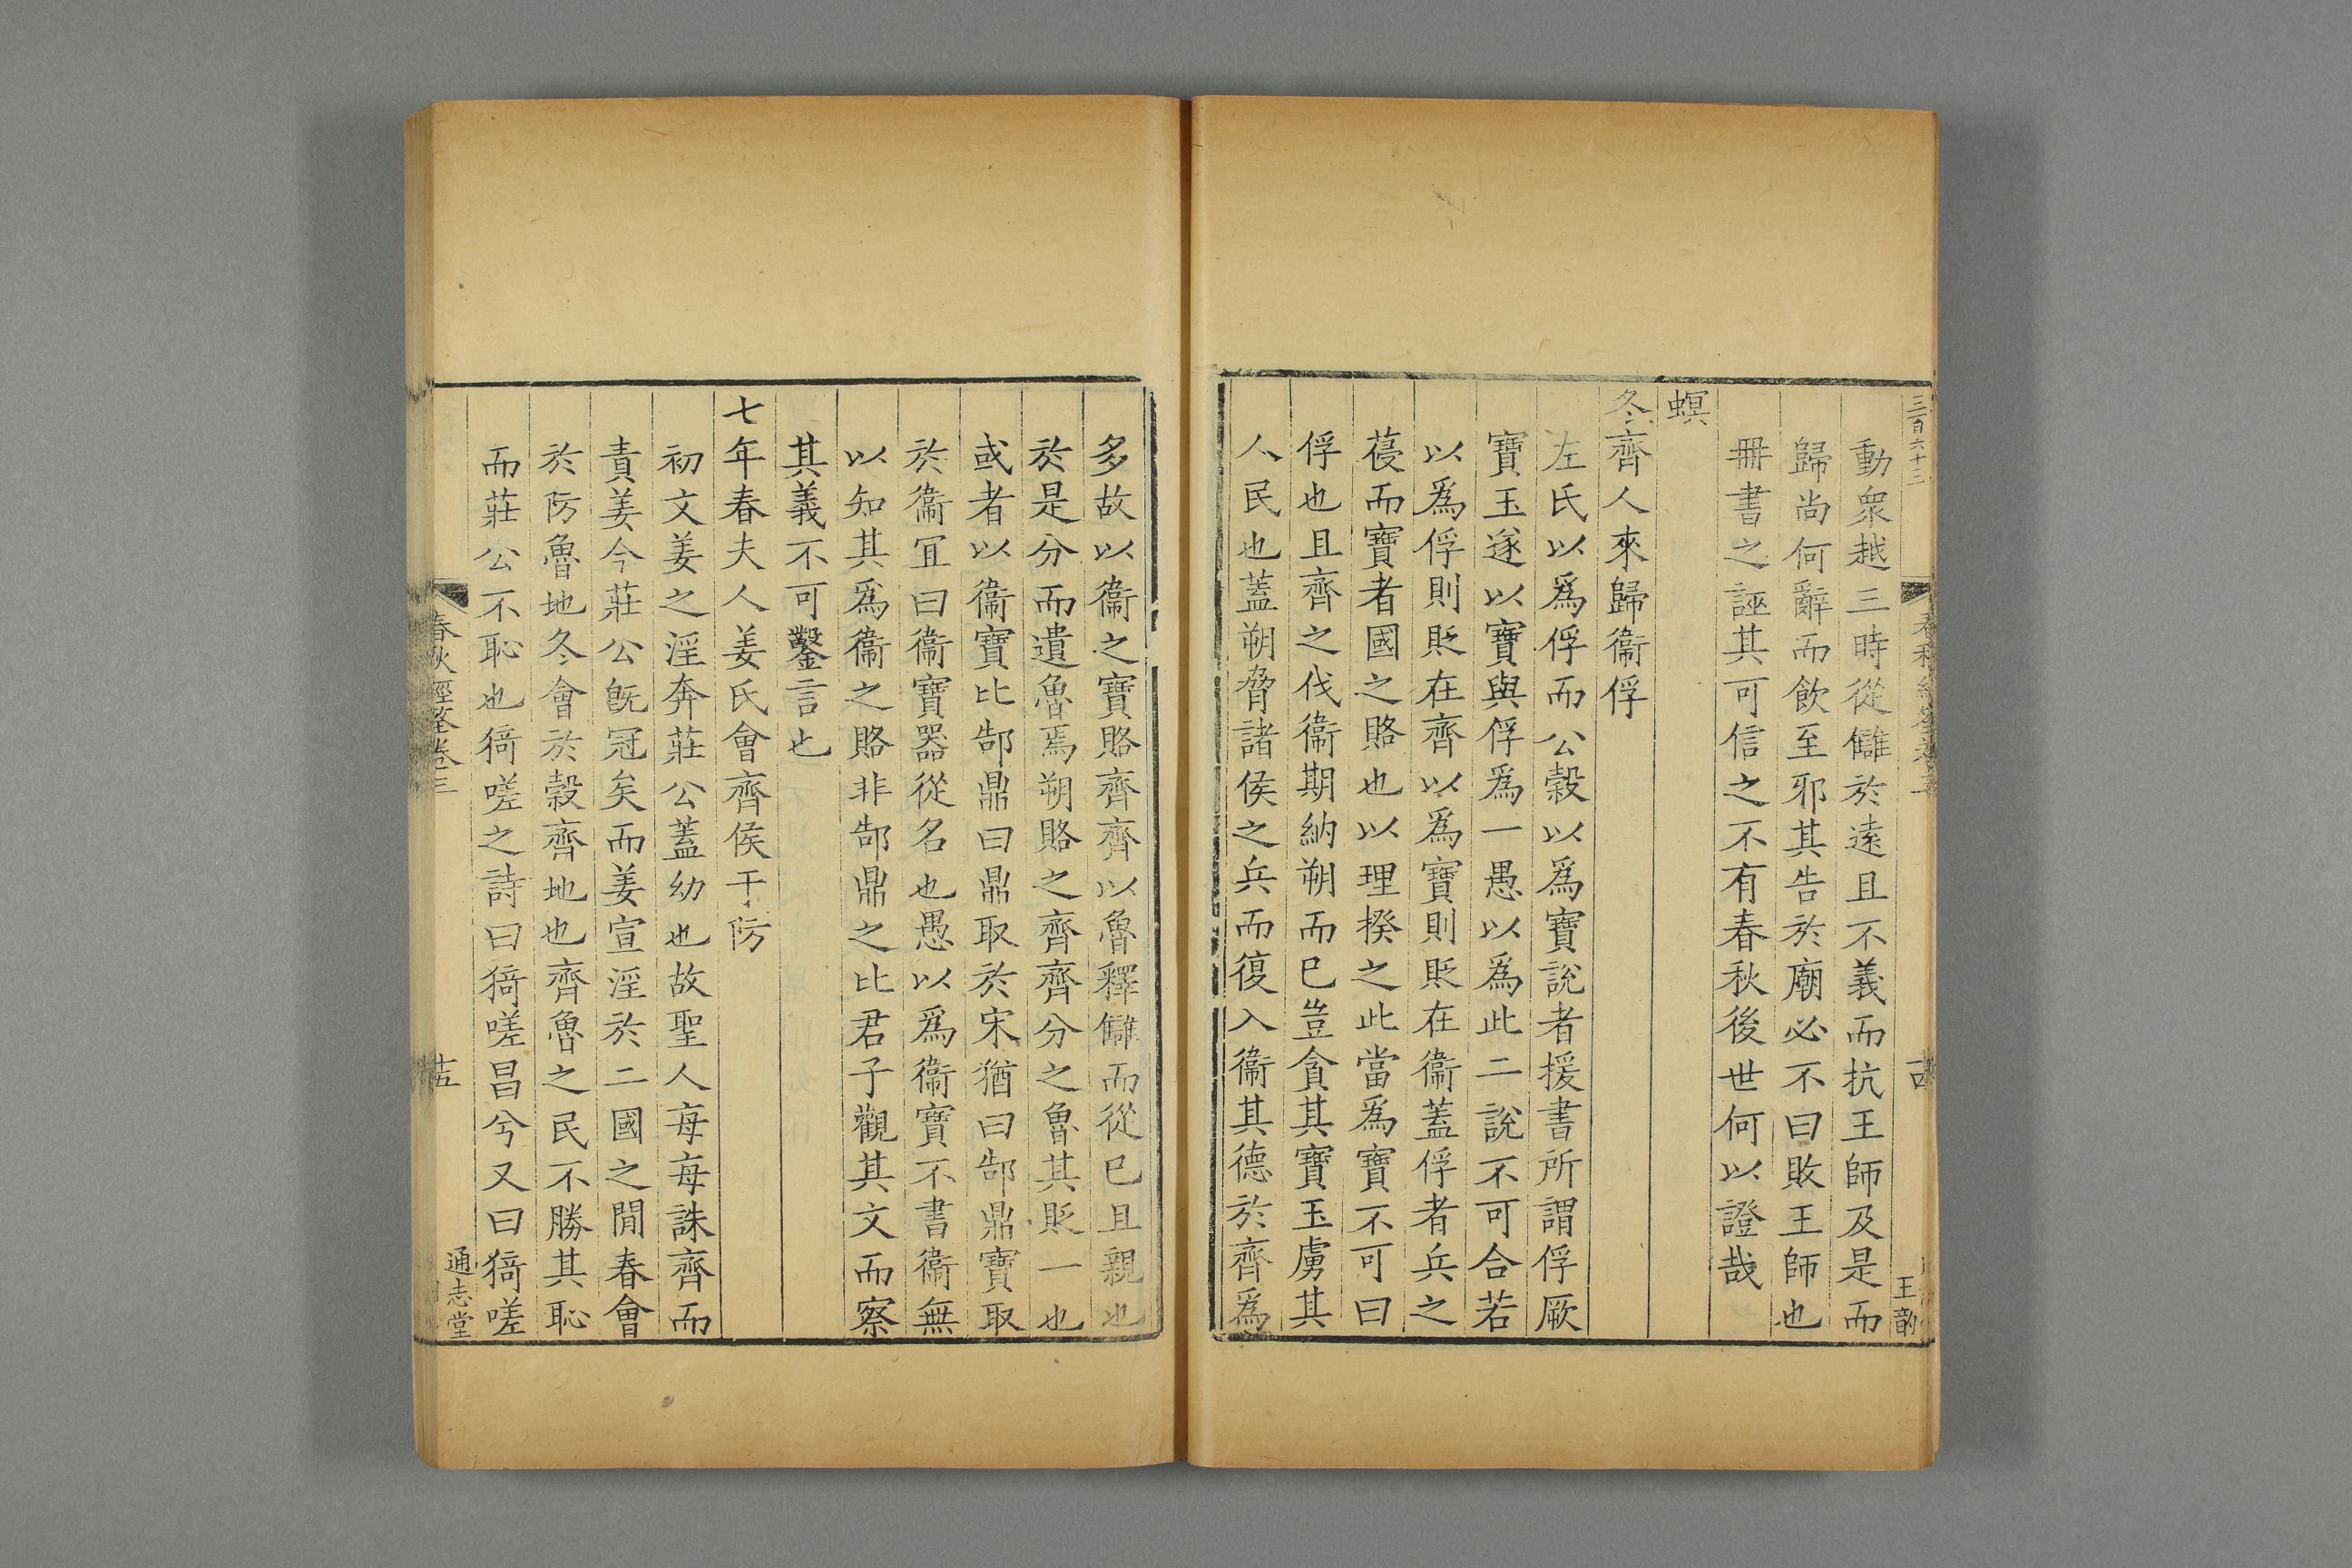 三百六十三
動衆越三時從讎於遠且不義而抗王師及是而
歸尚何辭而飲至邪其告於廟必不曰敗王師也
冊書之誣其可信之不有春秋後世何以證哉
螟
冬齊人來歸衞俘
左氏以爲俘而公穀以爲寶說者援書所謂俘厥
寶玉遂以寶與俘爲一愚以爲此二說不可合若
以爲俘則貶在齊以爲寶則貶在衞蓋俘者兵之
獲而寶者國之賂也以理揆之此當爲寶不可曰
俘也且齊之伐衞期納朔而已豈貪其寶玉虜其
人民也蓋朔脅諸侯之兵而復入衞其德於齊爲
王
多故以衞之寶賂齊齊以魯釋讎而從已且親也
於是分而遺魯焉朔賂之齊齊分之魯其貶一也
或者以衞寶比郜鼎曰鼎取於宋猶曰郜鼎寶取
於衞宜曰衞寶器從名也愚以爲衞寶不書衞無
以知其爲衞之賂非郜鼎之比君子觀其文而察
其義不可鑿言也
七年春夫人姜氏會齊侯于防
初文姜之淫奔莊公蓋幼也故聖人每每誅齊而
責姜今莊公旣冠矣而姜宣淫於二國之閒春會
於防魯地冬會於穀齊地也齊魯之民不勝其恥
而莊公不恥也猗嗟之詩曰猗嗟昌兮又曰猗嗟
春秋經筌卷三
十五
通志堂